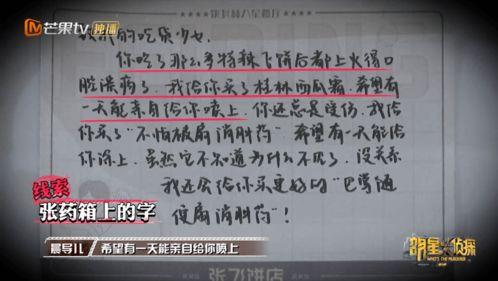 芒果tv 独播
我们的吃货少女:
你吃了那么多特辣飞饼后都上火得口
腔溃疡了,我给你买了桂林西瓜霜,希望有
一天能亲自给你喷上,你还总是受伤,我给
你买了“不怕破扁消肿药”希望有一天能给
你涂上,虽然它不知道为什么不见了,没关系
我还会给你买更好的“巴啰通
便扁消肿药”!
线索
张药箱上的字
晨导儿 希望有一天能亲自给你喷上
明星大侦探
WHO'S THE MURDERER
张飞饼店